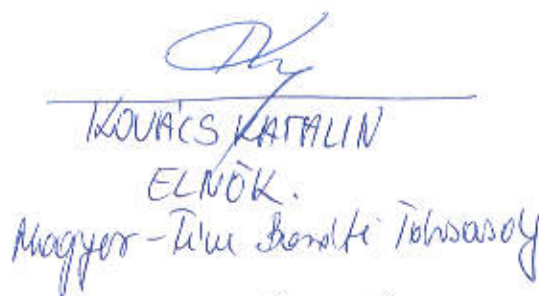 KOVÁCS KATALIN
ELNÖK.
Magyar - Kínai Baráti Társaság